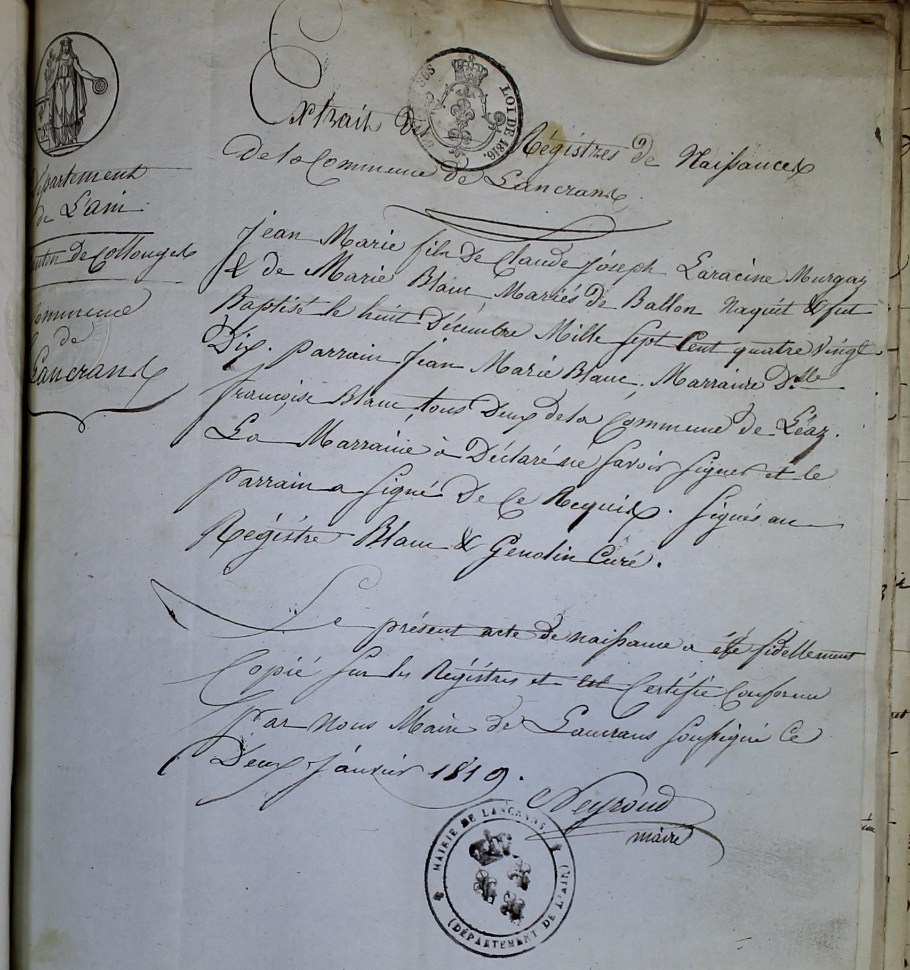 LOI DE 1816.
Extrait D Régistres de Naissances
De la Commune de Lancrans
Département
de Lain
Canton de Collonges
Commune
de
Lancrans
Jean Marie fils de Claude Joseph Laracine Murgaz
& de Marie Blanc Mariés de Ballon Naquit & fut
Baptisé le huit Décembre Mille sept Cent quatre Vingt
Dix. Parrain Jean Marie Blanc, Marraine D.lle
françoise Blanc tous Deux de la Commune de Léaz.
La Marraine à Déclaré ne savoir signer et le
Parrain a signé De Ce Requis. Signés au
Régistre Blanc & Genolin Curé.
Le présent acte de naissance a été fidellement
Copié sur les Régistres et Certifié Conforme
Par Nous Maire de Lancrans soussigné Ce
Deux Janvier 1819.
Neyroud
maire
MAIRIE DE LANCRANS
(DÉPARTEMENT DE L'AIN)